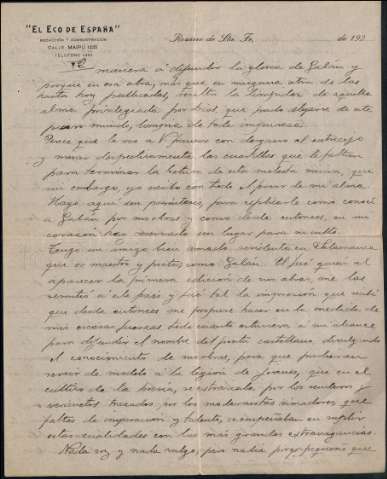 "EL ECO DE ESPAÑA"
REDACCIÓN Y ADMINISTRACIÓN
CALLE MAIPÚ
TELÉFONO
Rosario de Sta Fe, de 190
manera á difundir la gloria de Galán y
porque en esa obra, más que en ninguna otra de las
hasta hoy publicadas, resalta la de aquella
alma privilegiada por Dios que pudo alejarse de este
mundo, de toda impureza.
Parece que le veo á V fruncir con desgano el entrecejo
y mirar las cuartillas que le faltan
para terminar la lectura de esta molesta misiva, que
sin embargo, va escrita con todo el de mi alma.
Hago aquí un paréntesis, para explicarle como conocí
á Galán por sus obras y como desde entonces, en mi
corazón han un lugar para su culto.
Tengo un amigo bien amado residente en Salamanca
que es maestro y poeta, como Galán. El fué quien al
aparecer la primera edición de sus obras, me las
remitió á este pais y fué tal la impresión que recibí
que desde entonces me propuse hacer en la medida de
mis escasas fuerzas todo cuanto estuviera á mi alcance
para difundir el nombre del poeta castellano, divulgando
el conocimiento de sus obras, para que pudieran
servir de modelo á la legión de jóvenes, que en el
cultivo de la poesía, se extravían por los senderos y
vericuetos trazados, por los modernistas rimadores que
faltos de inspiración y talento, se empeñaban en suplir
estas cualidades con las más grandes extravagancias.
Nada soy y nada valgo, para nadie pequeño que